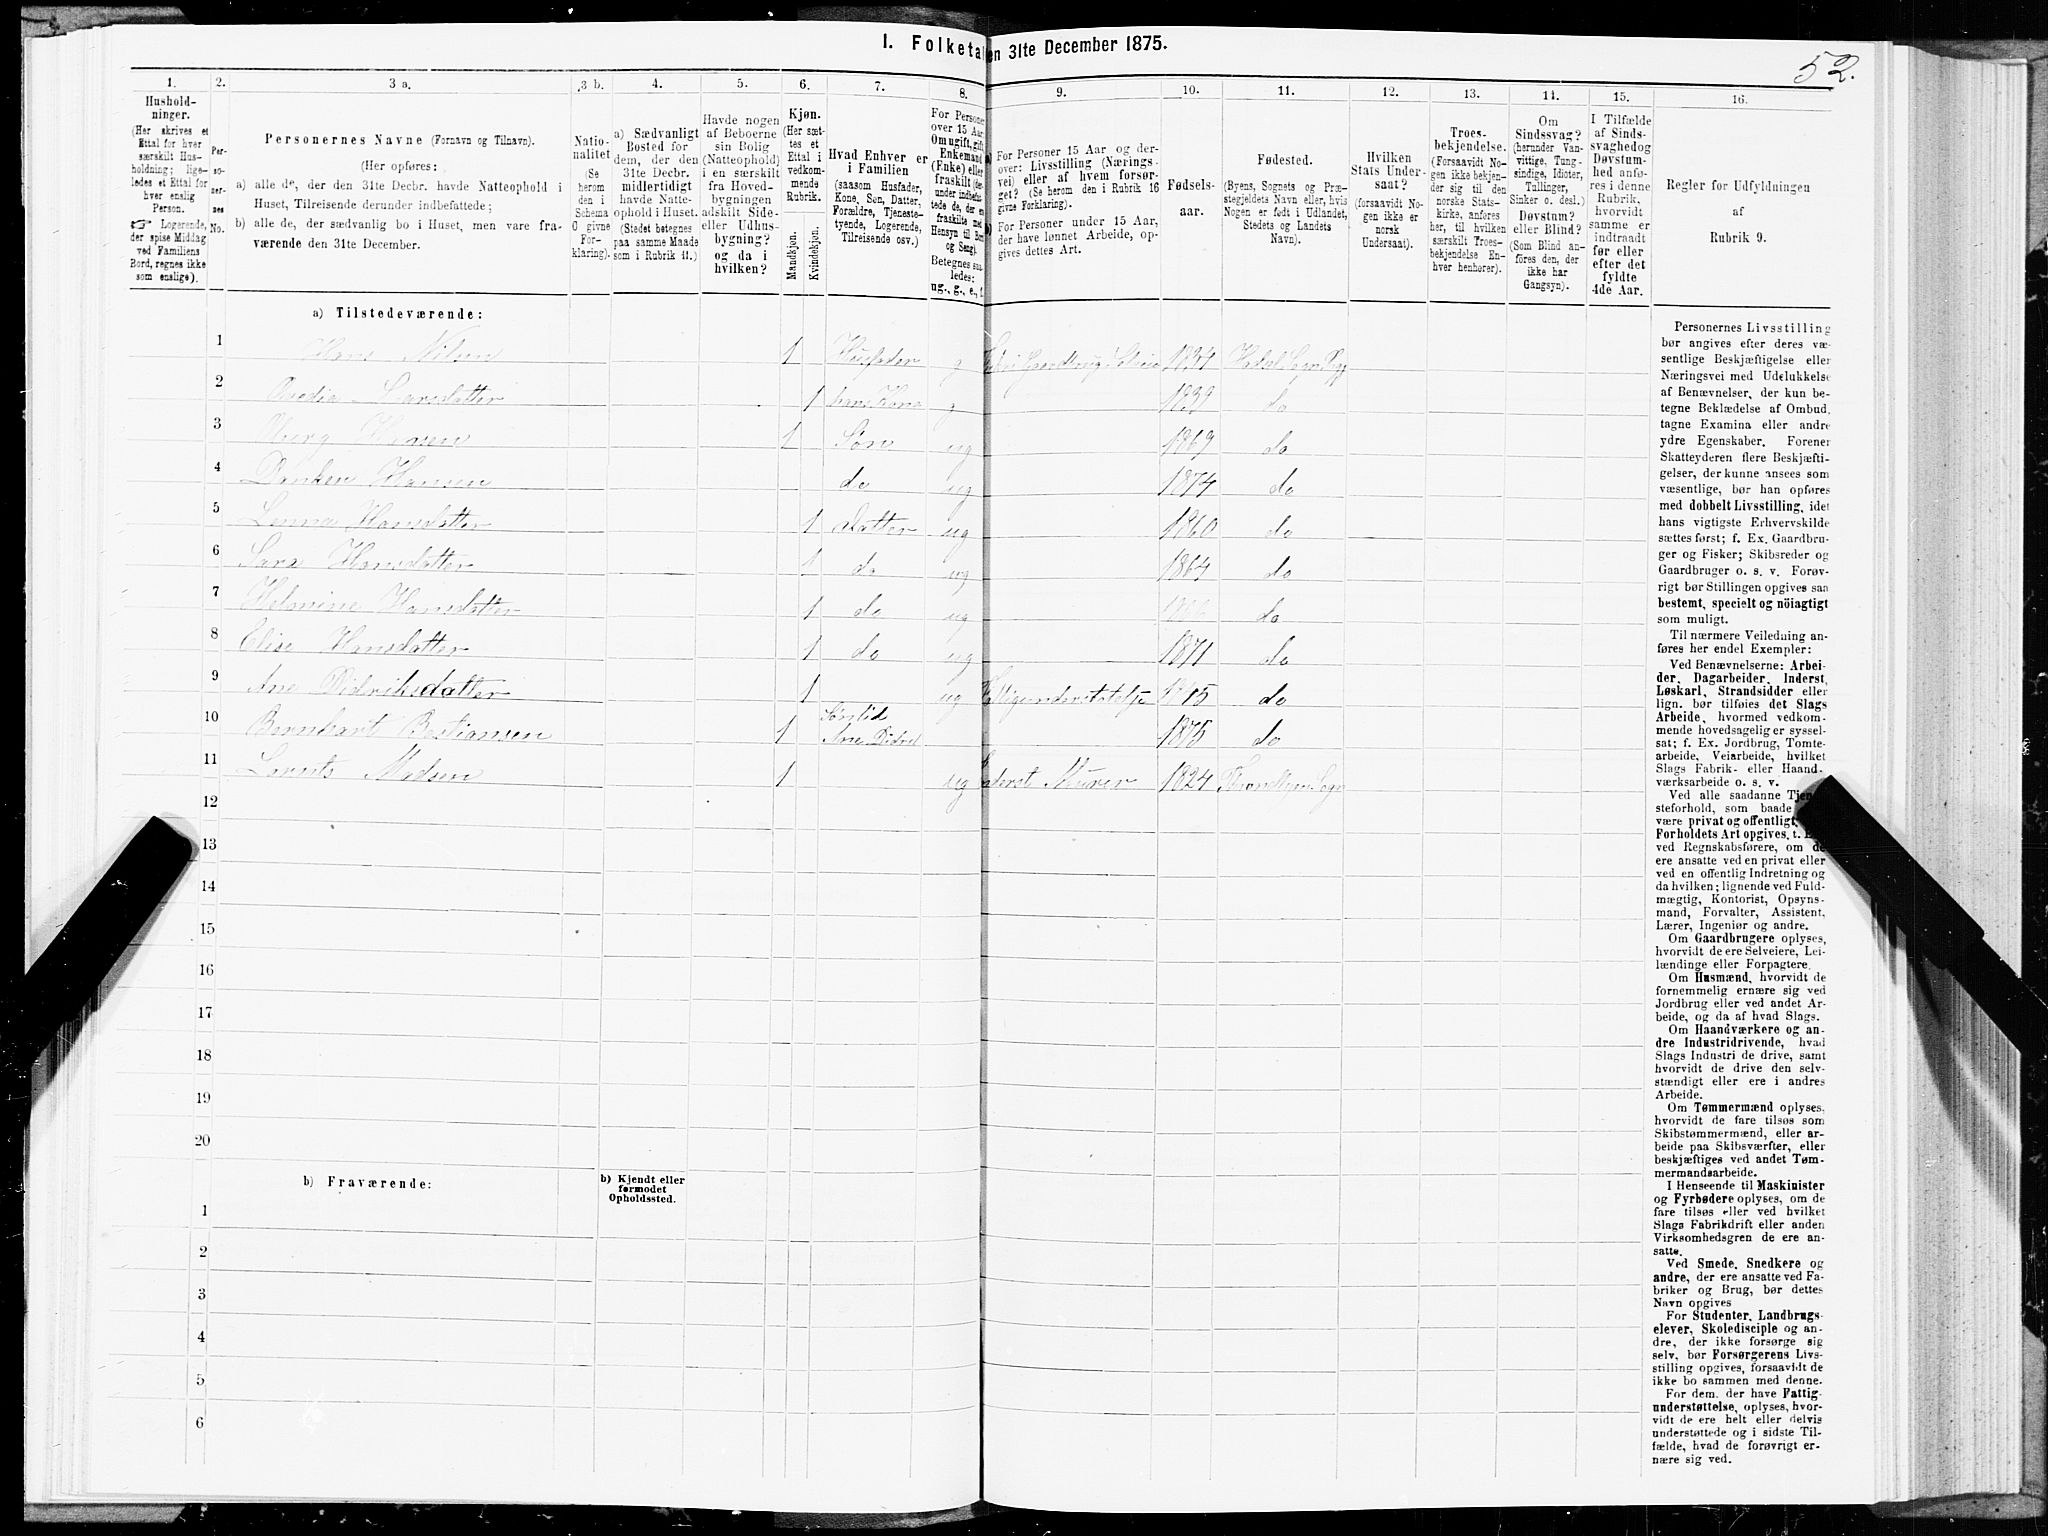 I. Folketal den 31te December 1875.
52.
1.
2.
3 a.
3 b.
4.
5.
6.
7.
8.
9.
10.
11.
12.
13.
14.
15.
16.
Hushold-
ninger.
(Her skrives et
Ettal for hver
særskilt Hus-
holdning; lige-
ledes et Ettal for
hver enslig
Person.
☞ Logerende,
der spise Middag
ved Familiens
Bord, regnes ikke
som enslige).
Per-
so-
ner-
nes
No.
Personernes Navne (Fornavn og Tilnavn).
(Her opføres:
a) alle de, der den 31te Decbr. havde Natteophold i
Huset, Tilreisende derunder indbefattede;
b) alle de, der sædvanlig bo i Huset, men vare fra-
værende den 31te December.
Natio-
nalitet
(Se
herom
den i
Schema
O givne
For-
klaring).
a) Sædvanligt
Bosted for
dem, der den
31te Decbr.
midlertidigt
havde Natte-
ophold i Huset.
(Stedet betegnes
paa samme Maade
som i Rubrik 11.)
Havde nogen
af Beboerne
sin Bolig
(Natteophold)
i en særskilt
fra Hoved-
bygningen
adskilt Side-
eller Udhus-
bygning?
og da i
hvilken?
Kjøn.
(Her sæt-
tes et
Ettal i
vedkom-
mende
Rubrik.
Mandkjøn.
Kvindekjøn.
Hvad Enhver er
i Familien
(saasom Husfader,
Kone, Søn, Datter,
Forældre, Tjeneste-
tyende, Logerende,
Tilreisende osv.)
For Personer
over 15 Aar:
Om ugift, gift,
Enkemand
(Enke) eller
fraskilt
Hensyn til Bord
og Seng).
Betegnes saa-
ledes:
ug., g., e., f.
a) For Personer 15 Aar og der-
over: Livsstilling (Nærings-
vei) eller af hvem forsør-
get? (Se herom den i Rubrik 16
givne Forklaring).
b) For Personer under 15 Aar,
der have lønnet Arbeide, op-
gives dettes Art.
Fødsels-
aar.
Fødested.
(Byens, Sognets og Præ-
stegjeldets Navn eller, hvis
Nogen er født i Udlandet,
Stedets og Landets
Navn).
Hvilken
Stats Under-
saat?
(forsaavidt No-
gen ikke er
norsk
Undersaat).
Troes-
bekjendelse.
(Forsaavidt No-
gen ikke bekjen-
der sig til den
norske Stats-
kirke, anføres
her, til hvilken
særskilt Troes-
bekjendelse En-
hver henhører).
Om
Sindssvag?
(herunder Van-
vittige, Tung-
sindige, Idioter,
Tullinger,
Sinker o. desl.)
Døvstum?
eller Blind?
(Som Blind an-
føres den, der
ikke har
Gangsyn).
I Tilfælde
af Sinds-
svaghed og
Døvstum-
hed anfø-
res i denne
Rubrik,
hvorvidt
samme er
indtraadt
før eller
efter det
fyldte
4de Aar.
Regler for Udfyldningen
af
Rubrik 9.
a) Tilstedeværende:
1 Hans Nilsen 1 Husfader g 1834
2 Larsdatter 1 hans Kone g 1839 do
3 Hansen 1 Søn ug 1869 do
4 Hansen do ug 1874 do
5 Lenna Hansdatter 1 datter ug 1860 do
6 Sara Hansdatter 1 do ug 1864 do
7 Helmine Hansdatter 1 do ug do
8 Elise Hansdatter 1 do ug 1871 do
9 Ane Didriksdatter 1 ug do
10 Bernhart Bestiansen 1 Søn til Ane 1875 do
11 Lornts Madsen 1 ug Inderst Murer 1824
12
13
14
15
16
17
18
19
20
b) Fraværende:
b) Kjendt eller
formodet
Opholdssted.
1
2
3
4
5
6
Personernes Livsstilling
bør angives efter deres væ-
sentlige Beskjæftigelse eller
Næringsvei med Udelukkelse
af Benævnelser, der kun be-
tegne Beklædelse af Ombud,
tagne Examina eller andre
ydre Egenskaber. Forener
Skatteyderen flere Beskjæfti-
gelser, der kunne ansees som
væsentlige, bør han opføres
med dobbelt Livsstilling, idet
hans vigtigste Erhvervskilde
sættes først; f. Ex. Gaardbru-
ger og Fisker; Skibsreder og
Gaardbruger o. s. v. Forøv-
rigt bør Stillingen opgives saa
bestemt, specielt og nöiagtigt
som muligt.
Til nærmere Veiledning an-
føres her endel Exempler:
Ved Benævnelserne: Arbei-
der, Dagarbeider, Inderst,
Løskarl, Strandsidder eller
lign. bør tilføies det Slags
Arbeide, hvormed vedkom-
mende hovedsagelig er syssel-
sat; f. Ex. Jordbrug, Tomte-
arbeide, Veiarbeide, hvilket
Slags Fabrik- eller Haand-
værksarbeide o. s. v.
Ved alle saadanne Tjene-
steforhold, som baade
være privat og offentligt,
Forholdets Art opgives, t. Ex.
ved Regnskabsførere, om de
ere ansatte ved en privat eller
ved en offentlig Indretning og
da hvilken; lignende ved Fuld-
mægtig, Kontorist, Opsyns-
mand, Forvalter, Assistent,
Lærer, Ingeniør og andre.
Om Gaardbrugere oplyses,
hvorvidt de ere Selveiere, Lei-
lændinge eller Forpagtere.
Om Husmænd, hvorvidt de
fornemmelig ernære sig ved
Jordbrug eller ved andet Ar-
beide, og da af hvad Slags.
Om Haandværkere og an-
dre Industridrivende, hvad
Slags Industri de drive, samt
hvorvidt de drive den selv-
stændigt eller ere i andres
Arbeide.
Om Tømmermænd oplyses,
hvorvidt de fare tilsøs som
Skibstømmermænd, eller ar-
beide paa Skibsværfter, eller
beskjæftiges ved andet Tøm-
mermandsarbeide.
I Henseende til Maskinister
og Fyrbødere oplyses, om de
fare tilsøs eller ved hvilket
Slags Fabrikdrift eller anden
Virksomhedsgren de ere an-
satte.
Ved Smede, Snedkere og
andre, der ere ansatte ved Fa-
briker og Brug, bør dettes
Navn opgives
For Studenter, Landbrugs-
elever, Skoledisciple og an-
dre, der ikke forsørge sig
selv, bør Forsørgerens Livs-
stilling opgives, forsaavidt de
ikke bo sammen med denne.
For dem, der have Fattig-
understøttelse, oplyses, hvor-
vidt de ere helt eller delvis
understøttede og i sidste Til-
fælde, hvad de forøvrigt er-
nære sig ved.